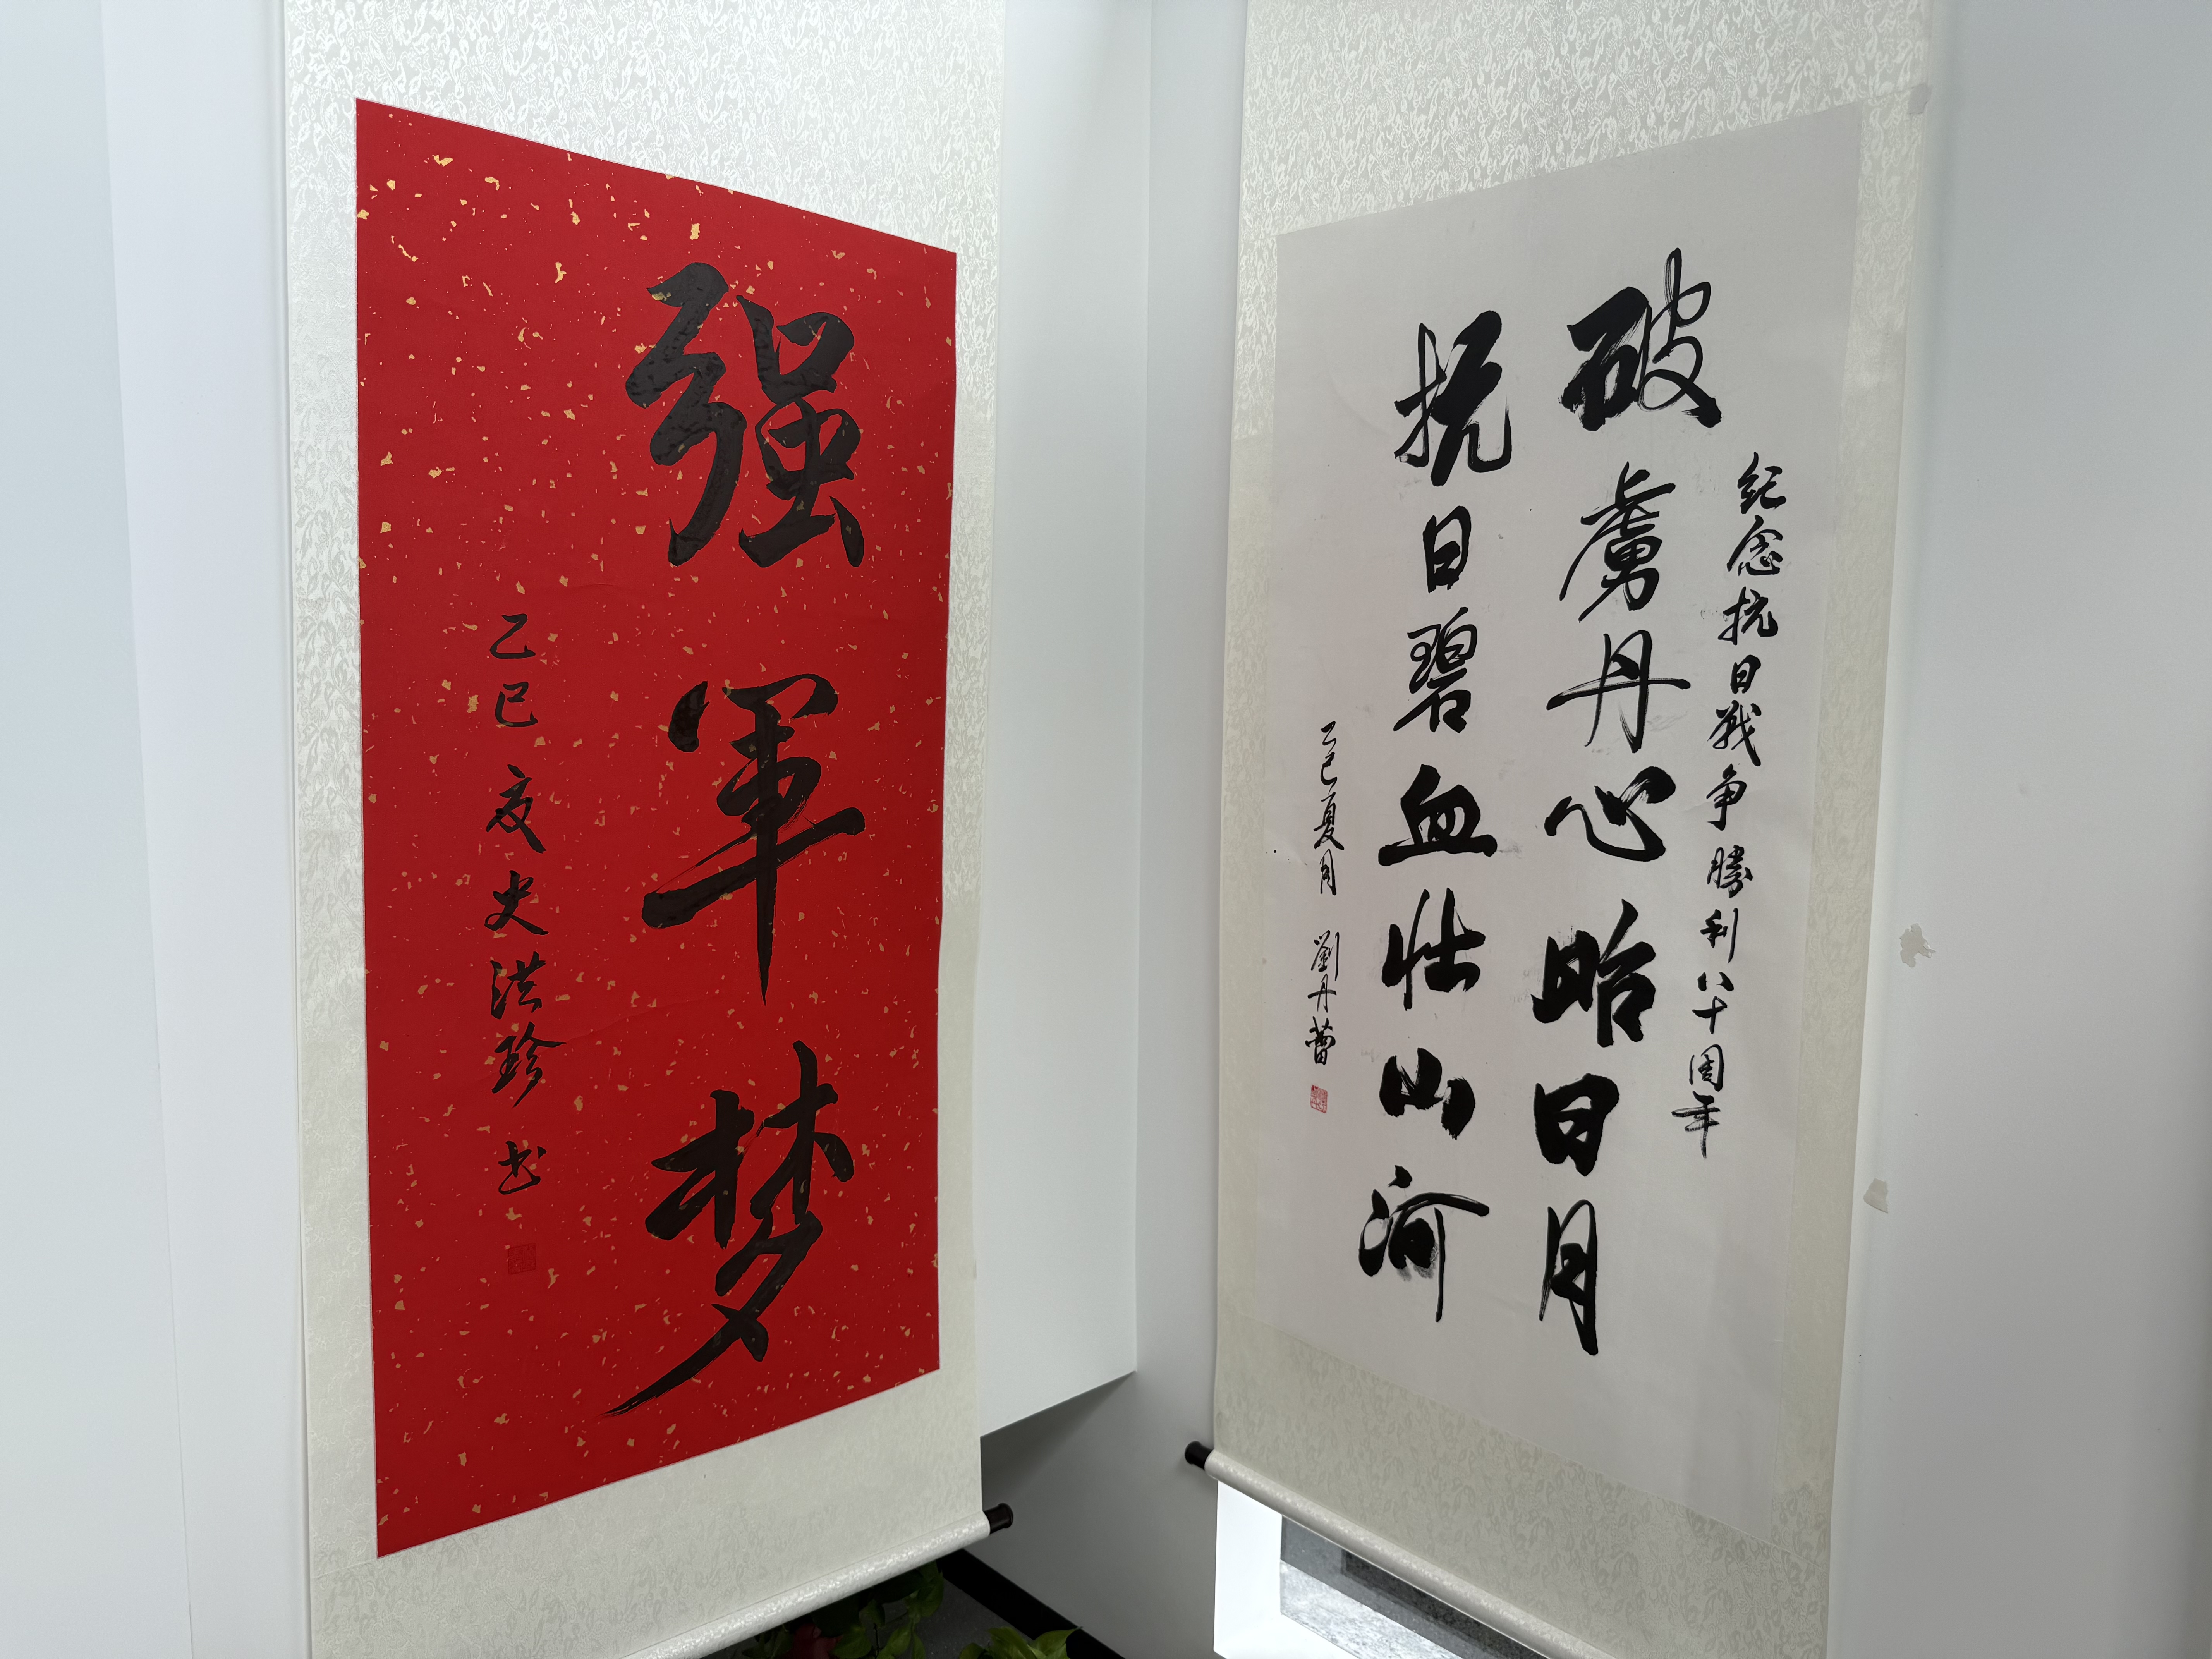 紀念抗日戰争勝利八十周年
破虜丹心昭日月
抗日碧血壮山河
乙巳夏月 劉丹
强军梦
乙巳夏史洪珍书